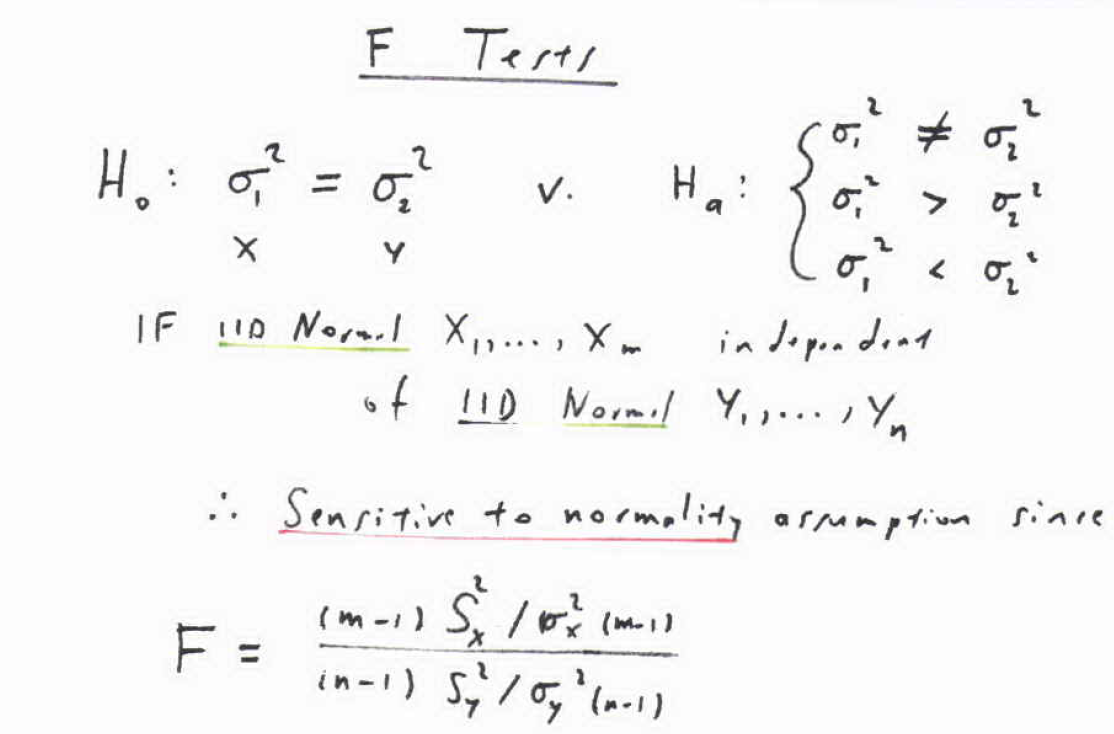 F Tests
H₀: σ₁² = σ₂² v. Hₐ: { σ₁² ≠ σ₂²
σ₁² > σ₂²
σ₁² < σ₂²
X Y
IF IID Normal X₁,..., Xₘ independent
of IID Normal Y₁,..., Yₙ
∴ Sensitive to normality assumption since
F = (m-1) Sₓ² / σₓ² (m-1)
(n-1) S_y² / σ_y² (n-1)